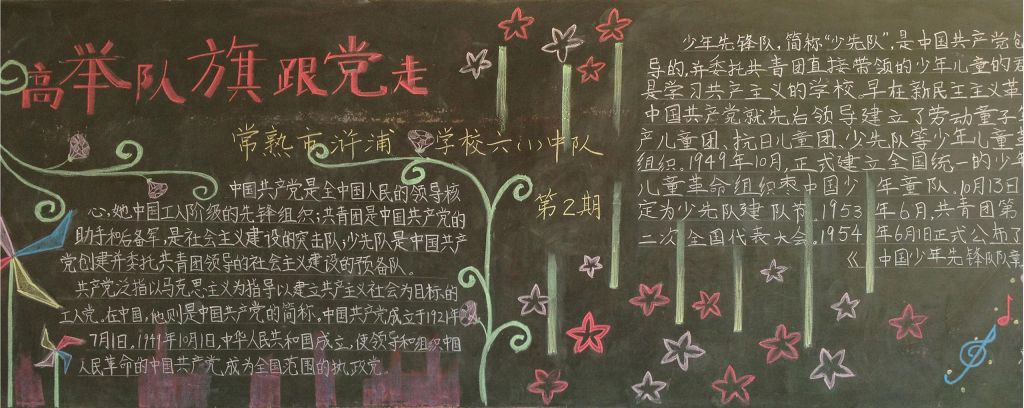 高举队旗跟党走
常熟市浒浦学校六(1)中队
第2期
中国共产党是全中国人民的领导核
心,她中国工人阶级的先锋组织;共青团是中国共产党的
助手和后备军,是社会主义建设的突击队;少先队是中国共产
党创建并委托共青团领导的社会主义建设的预备队。
共产党泛指以马克思主义为指导以建立共产主义社会为目标的
工人党。在中国,他则是中国共产党的简称。中国共产党成立于1921年
7月1日。1949年10月1日,中华人民共和国成立,使领导和组织中国
人民革命的中国共产党,成为全国范围的执政党。
少年先锋队,简称“少先队”,是中国共产党创
导的,并委托共青团直接带领的少年儿童的
是学习共产主义的学校。早在新民主主义革
中国共产党就先后领导建立了劳动童子
产儿童团、抗日儿童团、少先队等少年儿童革
组织。1949年10月,正式建立全国统一的少年
儿童革命组织中国少年童队。10月13日
定为少先队建队节。1953年6月,共青团第
二次全国代表大会。1954年6月1日正式公布了
《中国少年先锋队队章